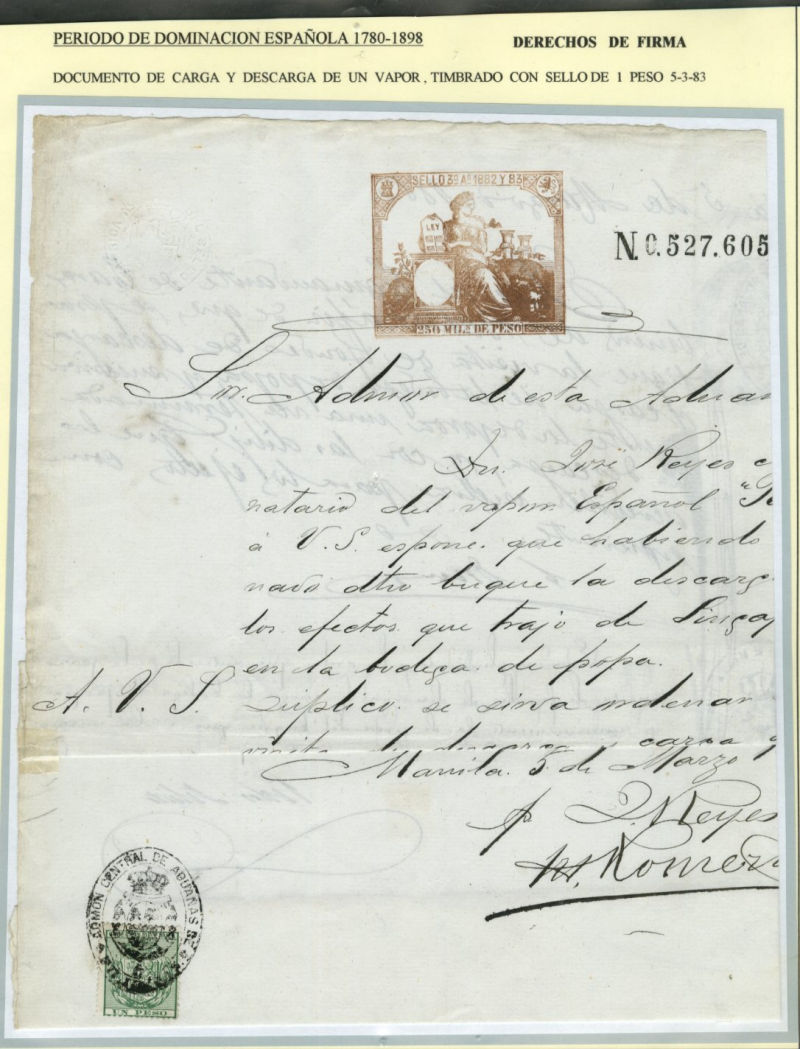 PERIODO DE DOMINACION ESPAÑOLA 1780-1898
DERECHOS DE FIRMA
DOCUMENTO DE CARGA Y DESCARGA DE UN VAPOR, TIMBRADO CON SELLO DE 1 PESO 5-3-83
SELLO 3º Aº 1882 Y 83
LEY
250 MILS DE PESO
N.0.527.605
Sor. Admor de esta Aduan
Dn. José Reyes
natario del vapor Español
á V. S. espone. que habiendo
nado dho buque la descarg
los efectos que trajo de Singa
en la bodega de popa.
A. V. S. súplico se sirva ordenar
visita de descarga y carga
Manila. 5 de Marzo
p J. Reyes
M. Romer
ADMON CENTRAL DE ADUANAS DE
UN PESO